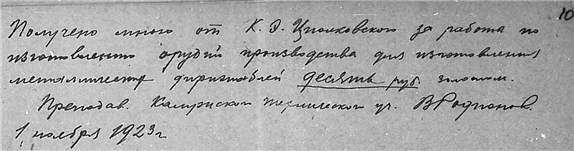 10
Получено мною от К. Э. Циолковского за работа по
изготовлению орудий производства для изготовления
металлических дирижаблей десять руб. золотом.
Преподав. Калужского технического уч. В Родионов.
1 ноября 1923 г